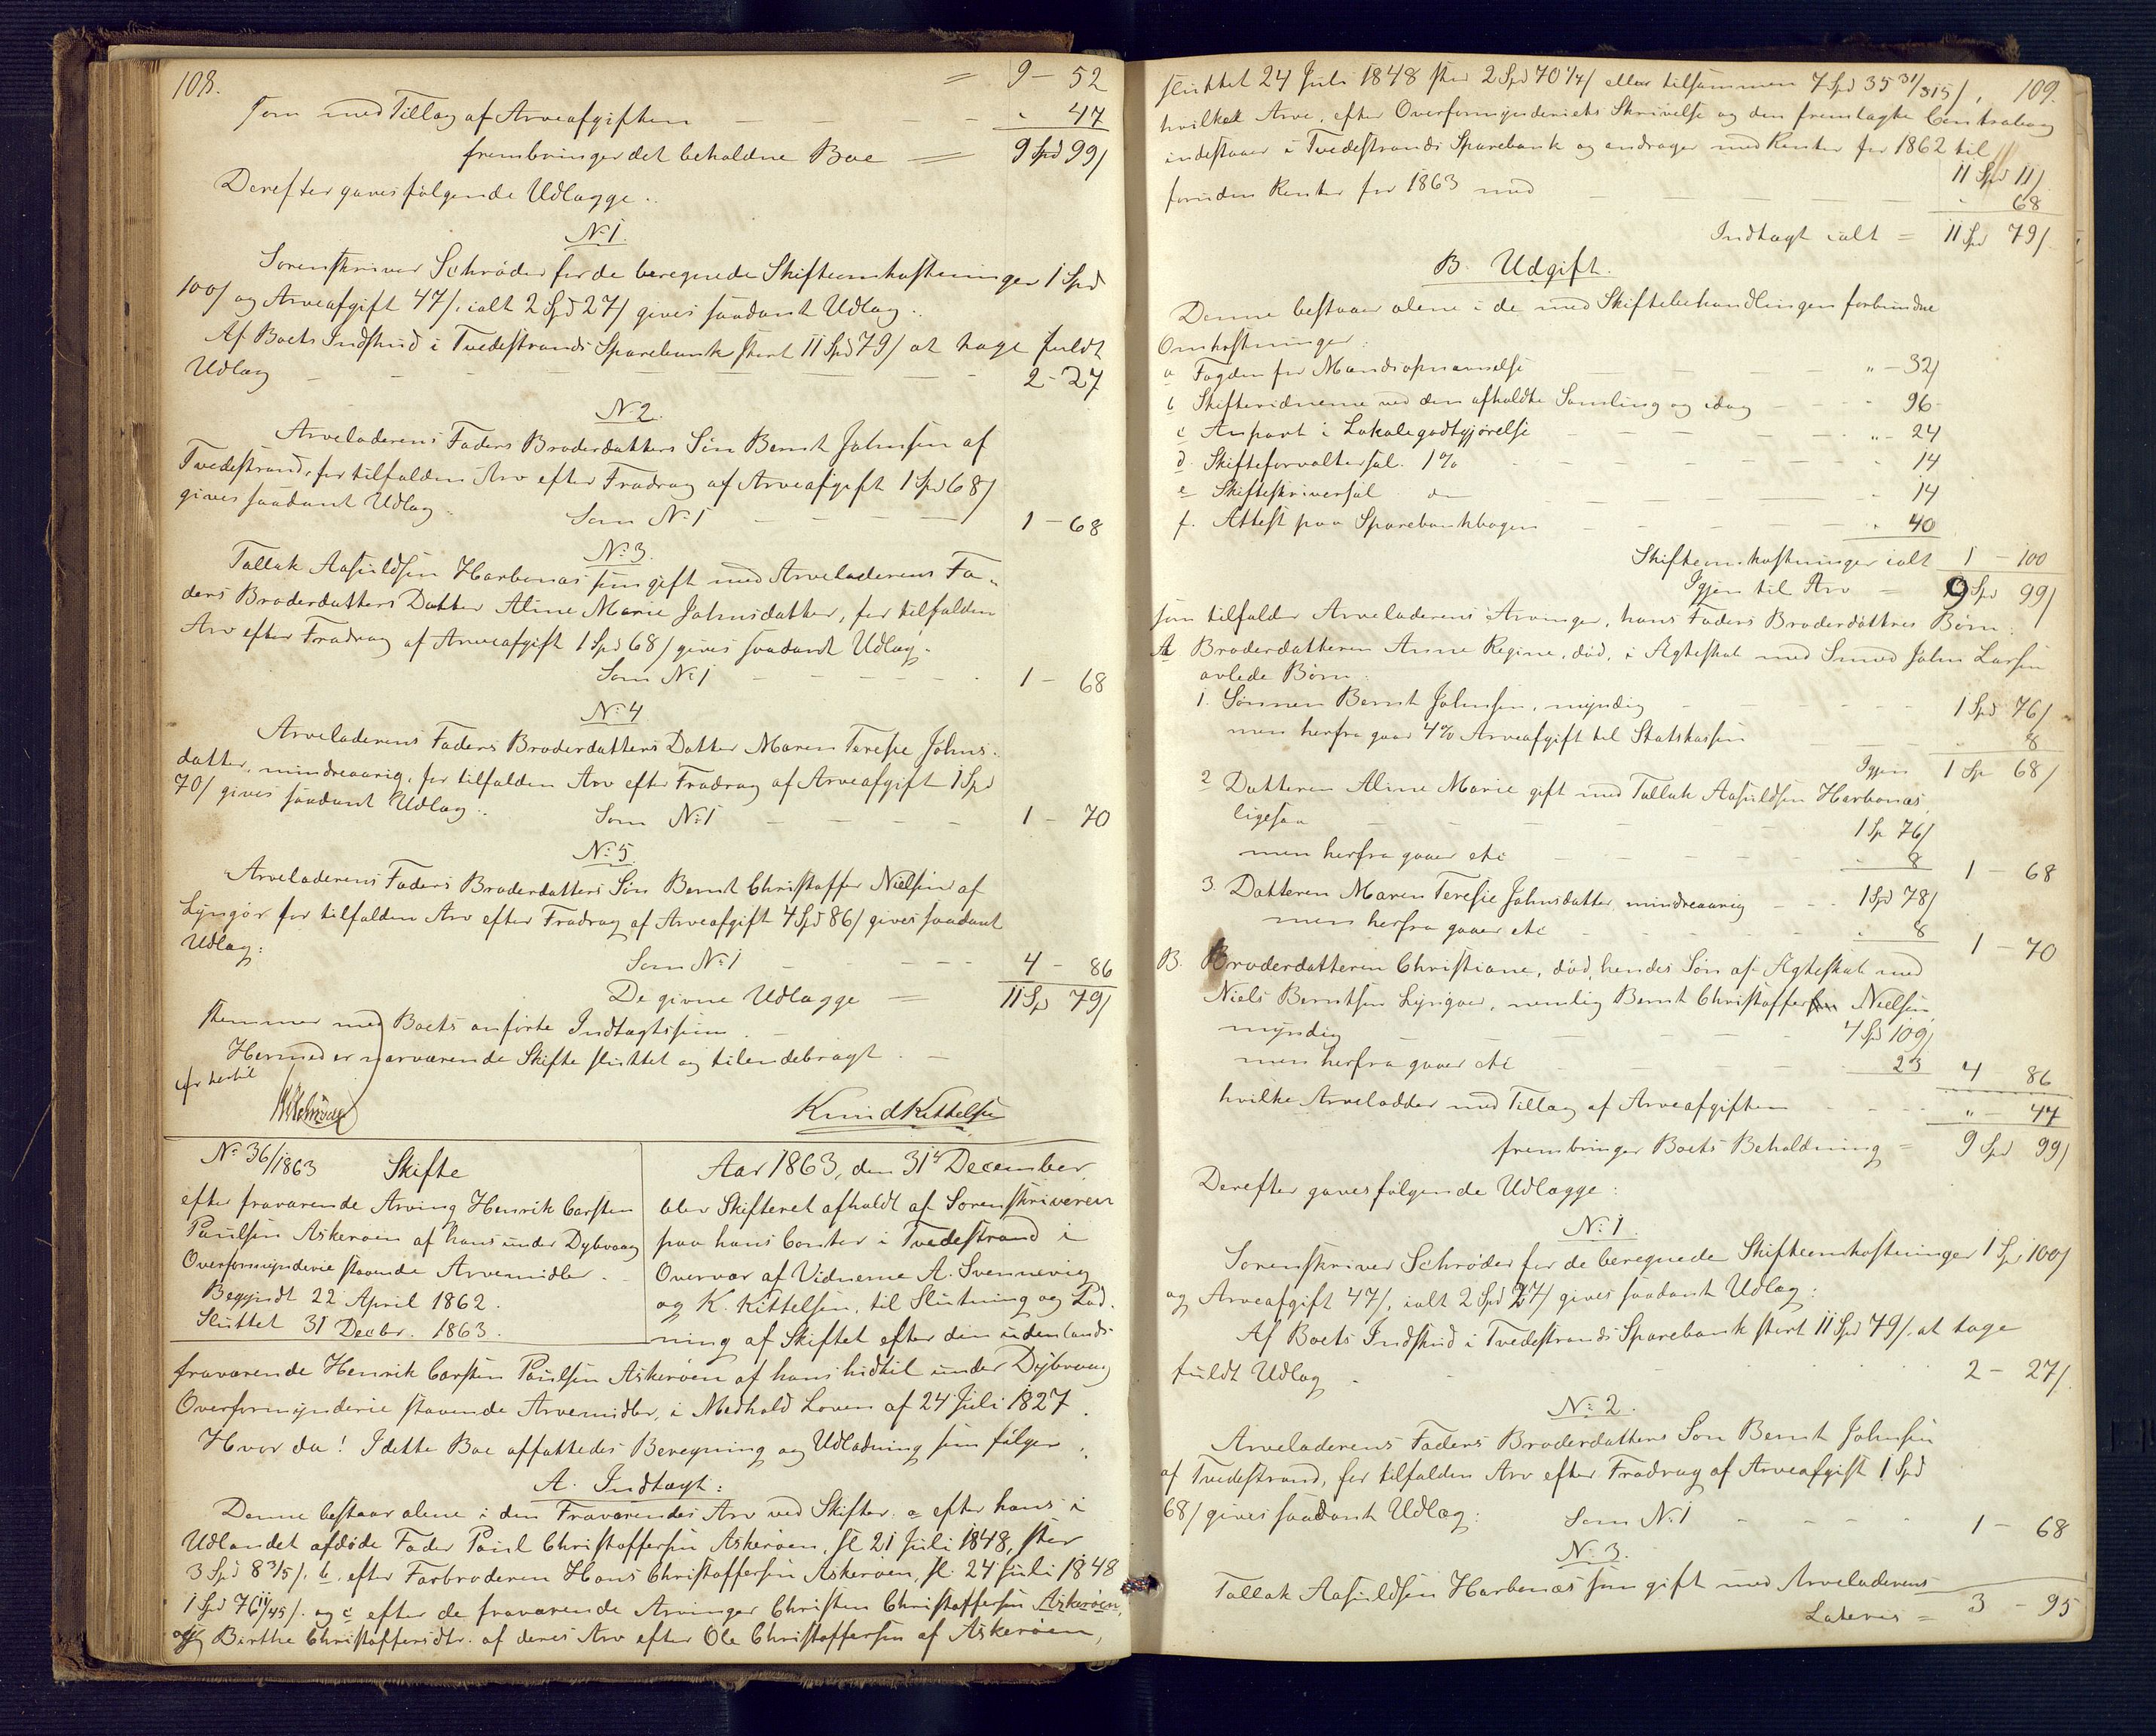 108.
= 9 - 52
som med Tillæg af Arveafgiften - - - " 47
frembringer det beholdne Boe = 9 Spd 99 /
Derefter gaves følgende Udlægge:
No 1.
Sorenskriver Schrøder for de beregnede Skifteomkostninger 1 Spd
100 / og Arveafgift 47 /, ialt 2 Spd 27 / gives saadant Udlæg:
Af Boets Indskud i Tvedestrands Sparebank stort 11 Spd 79 / at tage fuldt
Udlæg - - - 2 - 27
No 2.
Arveladerens Faders Broderdatters Søn Bernt Johnsen af
Tvedestrand, for tilfalden Arv efter Fradrag af Arveafgift 1 Spd 68 /
gives saadant Udlæg: Som No 1 - - - 1 - 68
No 3.
Tallak Aasuldsen Harbonæs som gift med Arveladerens Fa-
ders Broderdatters Datter Aline Marie Johnsdatter, for tilfalden
Arv efter Fradrag af Arveafgift 1 Spd 68 / gives saadant Udlæg:
Som No 1 - - - 1 - 68
No 4
Arveladerens Faders Broderdatters Datter Maren Teresie Johns-
datter, mindreaarig, for tilfalden Arv efter Fradrag af Arveafgift 1 Spd
70 / gives saadant Udlæg: Som No 1 - - - 1 - 70
No 5.
Arveladerens Faders Broderdatters Søn Bernt Christoffer Nielsen af
Lyngør for tilfalden Arv efter Fradrag af Arveafgift 4 Spd 86 / gives saadant
Udlæg:
Som No 1 - - - 4 - 86
De givne Udlægge = 11 Sp 79 /
stemmer med Boets anførte Indtægtssum. -
Hermed er nærværende Skifte sluttet og tilendebragt. -
Schrøder Knud Kittelsen
No 36/1863 Skifte
efter fraværende Arving Henrik Carsten
Paulsen Askerøen af hans under Dybvaag
Overformynderie staaende Arvemidler. -
Begyndt 22 April 1862.
Sluttet 31 Decbr. 1863.
Aar 1863, den 31te December
blev Skifteret afholdt af Sorenskriveren
paa hans Contor i Tvedestrand i
Overvær af Vidnerne A. Svennevig
og K. Kittelsen, til Slutning og Lad-
ning af Skiftet efter den udenlands-
fraværende Henrik Carsten Paulsen Askerøen af hans hidtil under Dybvaag
Overformynderie staaende Arvemidler, i Medhold Loven af 24 Juli 1827.
Hvor da! I dette Boe affattedes Beregning og Udlodning som følger:
A. Indtægt:
Denne bestaar alene i den Fraværendes Arv ved Skifter: a efter hans i
Udlandet afdøde Fader Paul Christoffersen Askerøen, sl. 21 Juli 1848, stor
3 Spd 8 3/5 /. b. efter Farbroderen Hans Christoffersen Askerøen, sl. 24 Juli 1848
1 Spd 76 11/45 /. og c efter de fraværende Arvinger Christen Christoffersen Askerøen,
og Birthe Christoffersdtr. af deres Arv efter Ole Christoffersen af Askerøen,
109.
sluttet 24 Juli 1848 stor 2 Spd 70 1/7 / eller tilsammen 7 Spd 35 31/315 /,
hvilket Arv, efter Overformynderiets Skrivelse og den fremlagte Contrabog
indestaaer i Tvedestrands Sparebank og andrager med Renter for 1862 til
11 Spd 11 /
foruden Renter for 1863 med - - - " 68
Indtægt ialt = 11 Spd 79 /.
B. Udgift.
Denne bestaaer alene i de med Skiftebehandlingen forbundne
Omkostninger:
a Fogden for Mandsopnævnelse - - - " - 32 /
b Skiftevidnerne ved den afholdte Samling og idag - - - " 96 -
c Anpart i Lokalegodtgjørelse - - - " - 24
d. Skifteforvaltersal. 1 % - - - " 14
e Skifteskriversal do - - - " 14
f. Attest paa Sparebankbogen - - - " 40
Skifteomkostninger ialt 1 - 100
Igjen til Arv = 9 Spd 99 /
som tilfalder Arveladerens Arvinger, hans Faders Broderdøttres Børn:
A Broderdatteren Anne Regine, død, i Ægteskab med Smed John Larsen
avlede Børn:
1. Sønnen Bernt Johnsen, myndig - - - 1 Spd 76 /
men herfra gaar 4 % Arveafgift til Statskassen - - - " 8
Igjen 1 Sp 68 /
2 Datteren Aline Marie gift med Tallak Aasuldsen Harbonæs,
ligesaa - - - 1 Sp 76 /
men herfra gaaer etc - - - " 8 1 - 68
3. Datteren Maren Teresie Johnsdatter, mindreaarig - - - 1 Spd 78 /
men herfra gaaer etc - - - " 8 1 - 70
B. Broderdatteren Christiane, død, hendes Søn af Ægteskab med
Niels Berntsen Lyngøer, nemlig Bernt Christoffer Nielsen,
myndig - - - 4 Spd 109 /
men herfra gaaer etc - - - 23 4 86
hvilke Arvelodder med Tillæg af Arveafgiften - - - " - 47
frembringer Boets Beholdning = 9 Spd 99 /
Derefter gaves følgende Udlægge:
No 1.
Sorenskriver Schrøder for de beregnede Skifteomkostninger 1 Sp 100 /
og Arveafgift 47 /, ialt 2 Spd 27 / gives saadant Udlæg:
Af Boets Indskud i Tvedestrands Sparebank stort 11 Spd 79 /. at tage
fuldt Udlæg - - - 2 - 27 /.
No 2.
Arveladerens Faders Broderdatters Søn Bernt Johnsen
af Tvedestrand, for tilfalden Arv efter Fradrag af Arveafgift 1 Spd
68 / gives saadant Udlæg: Som No 1 - - - 1 - 68
No 3.
Tallak Aasuldsen Harbonæs som gift med Arveladerens
Lateris = 3 - 95